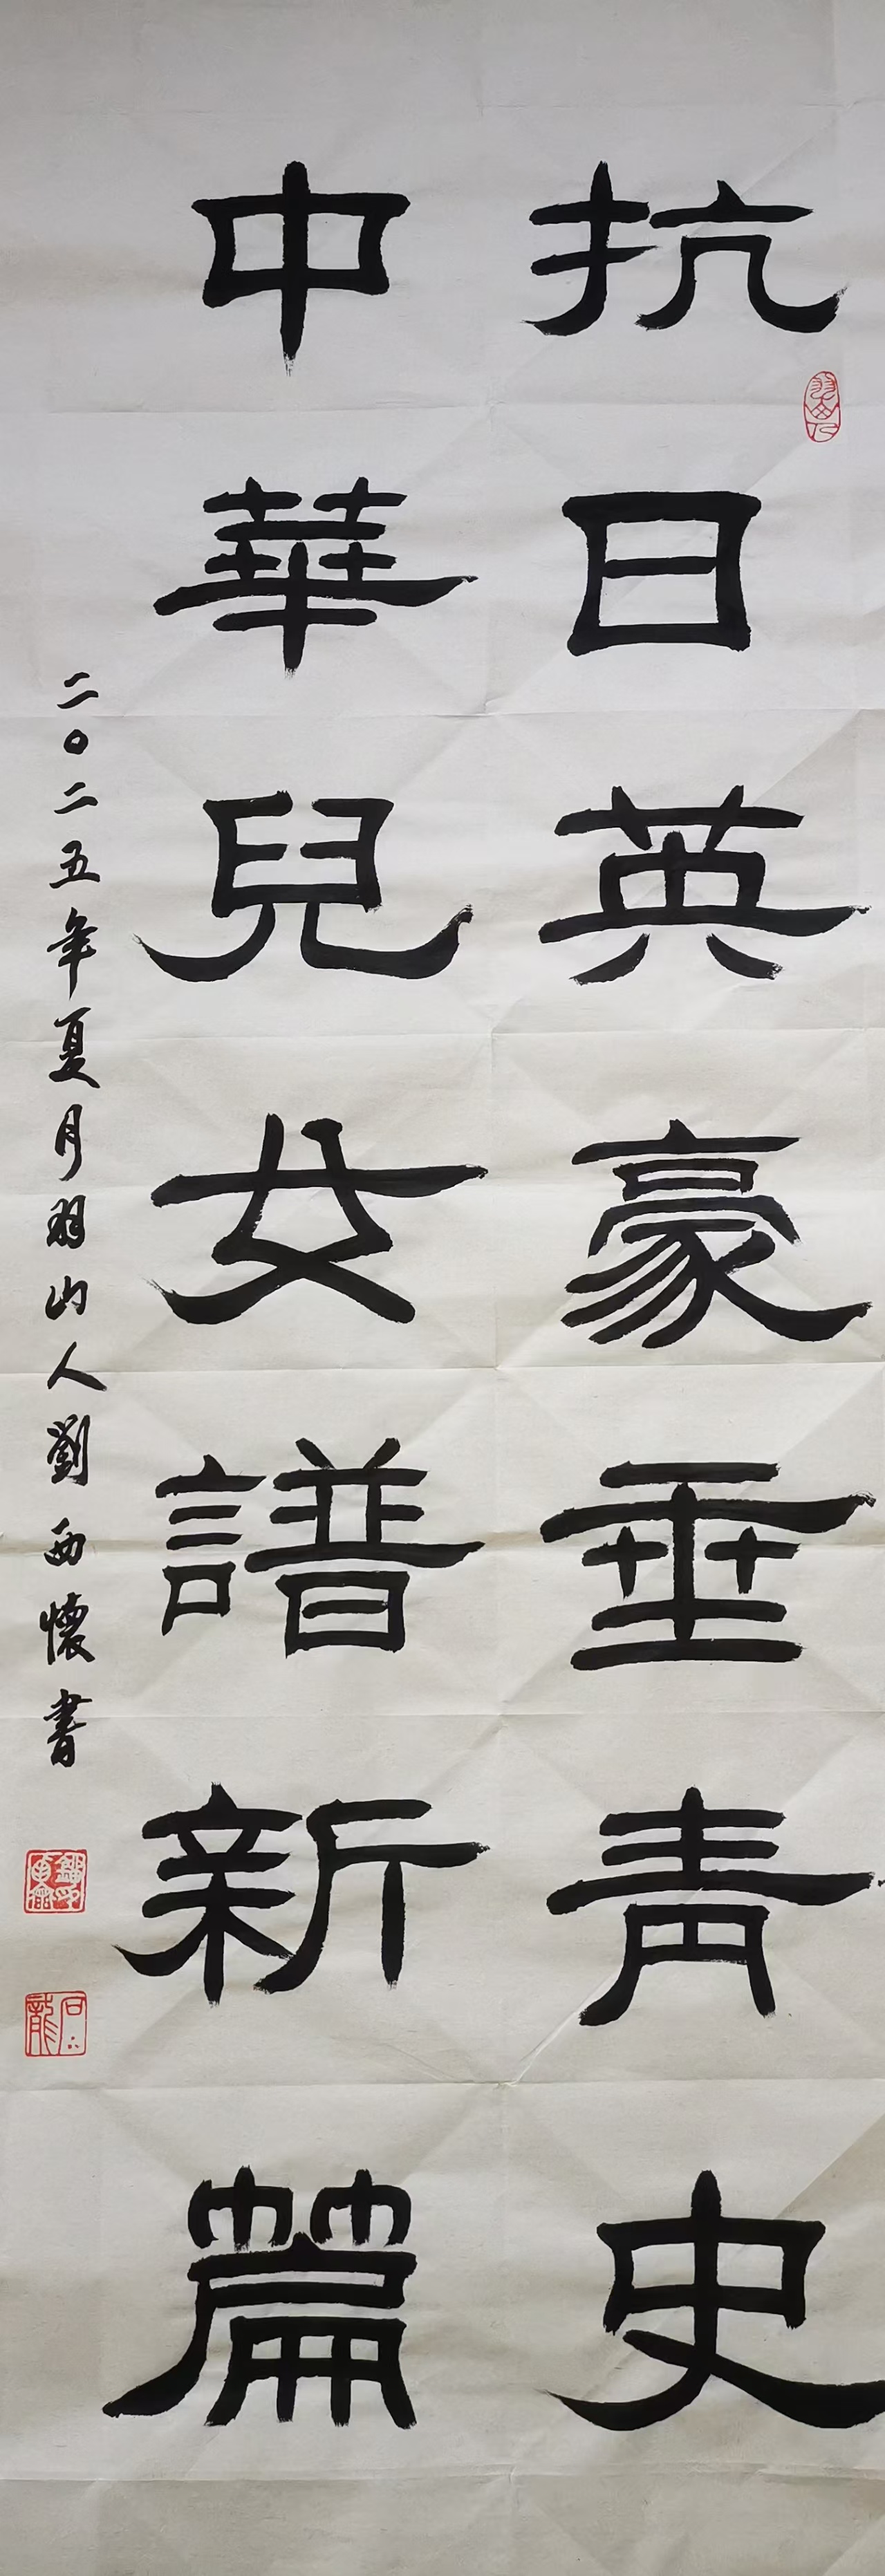 抗日英豪垂青史
中華兒女譜新篇
二〇二五年夏月羽山人劉西懷書